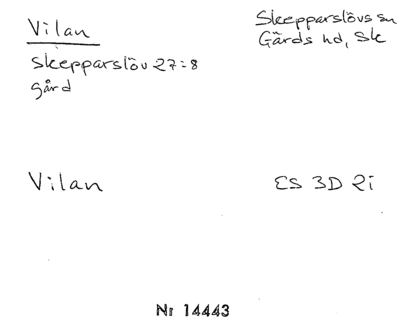 Vilan
Skepparslövs sn
Gärds hd, Sk
Skepparslöv 27:8
gård
Vilan
ES 3D 2i
Nr 14443